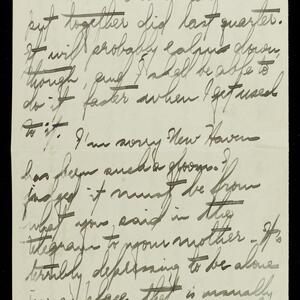 put together did last quarter.
It will probably calm down
though and I shall be able to
do it faster when I get used
to it. I'm sorry New Haven
has been such a gloom. I
judged it must be from
what you said in the
telegram to your mother. It's
terribly depressing to be alone
in a place that is usually